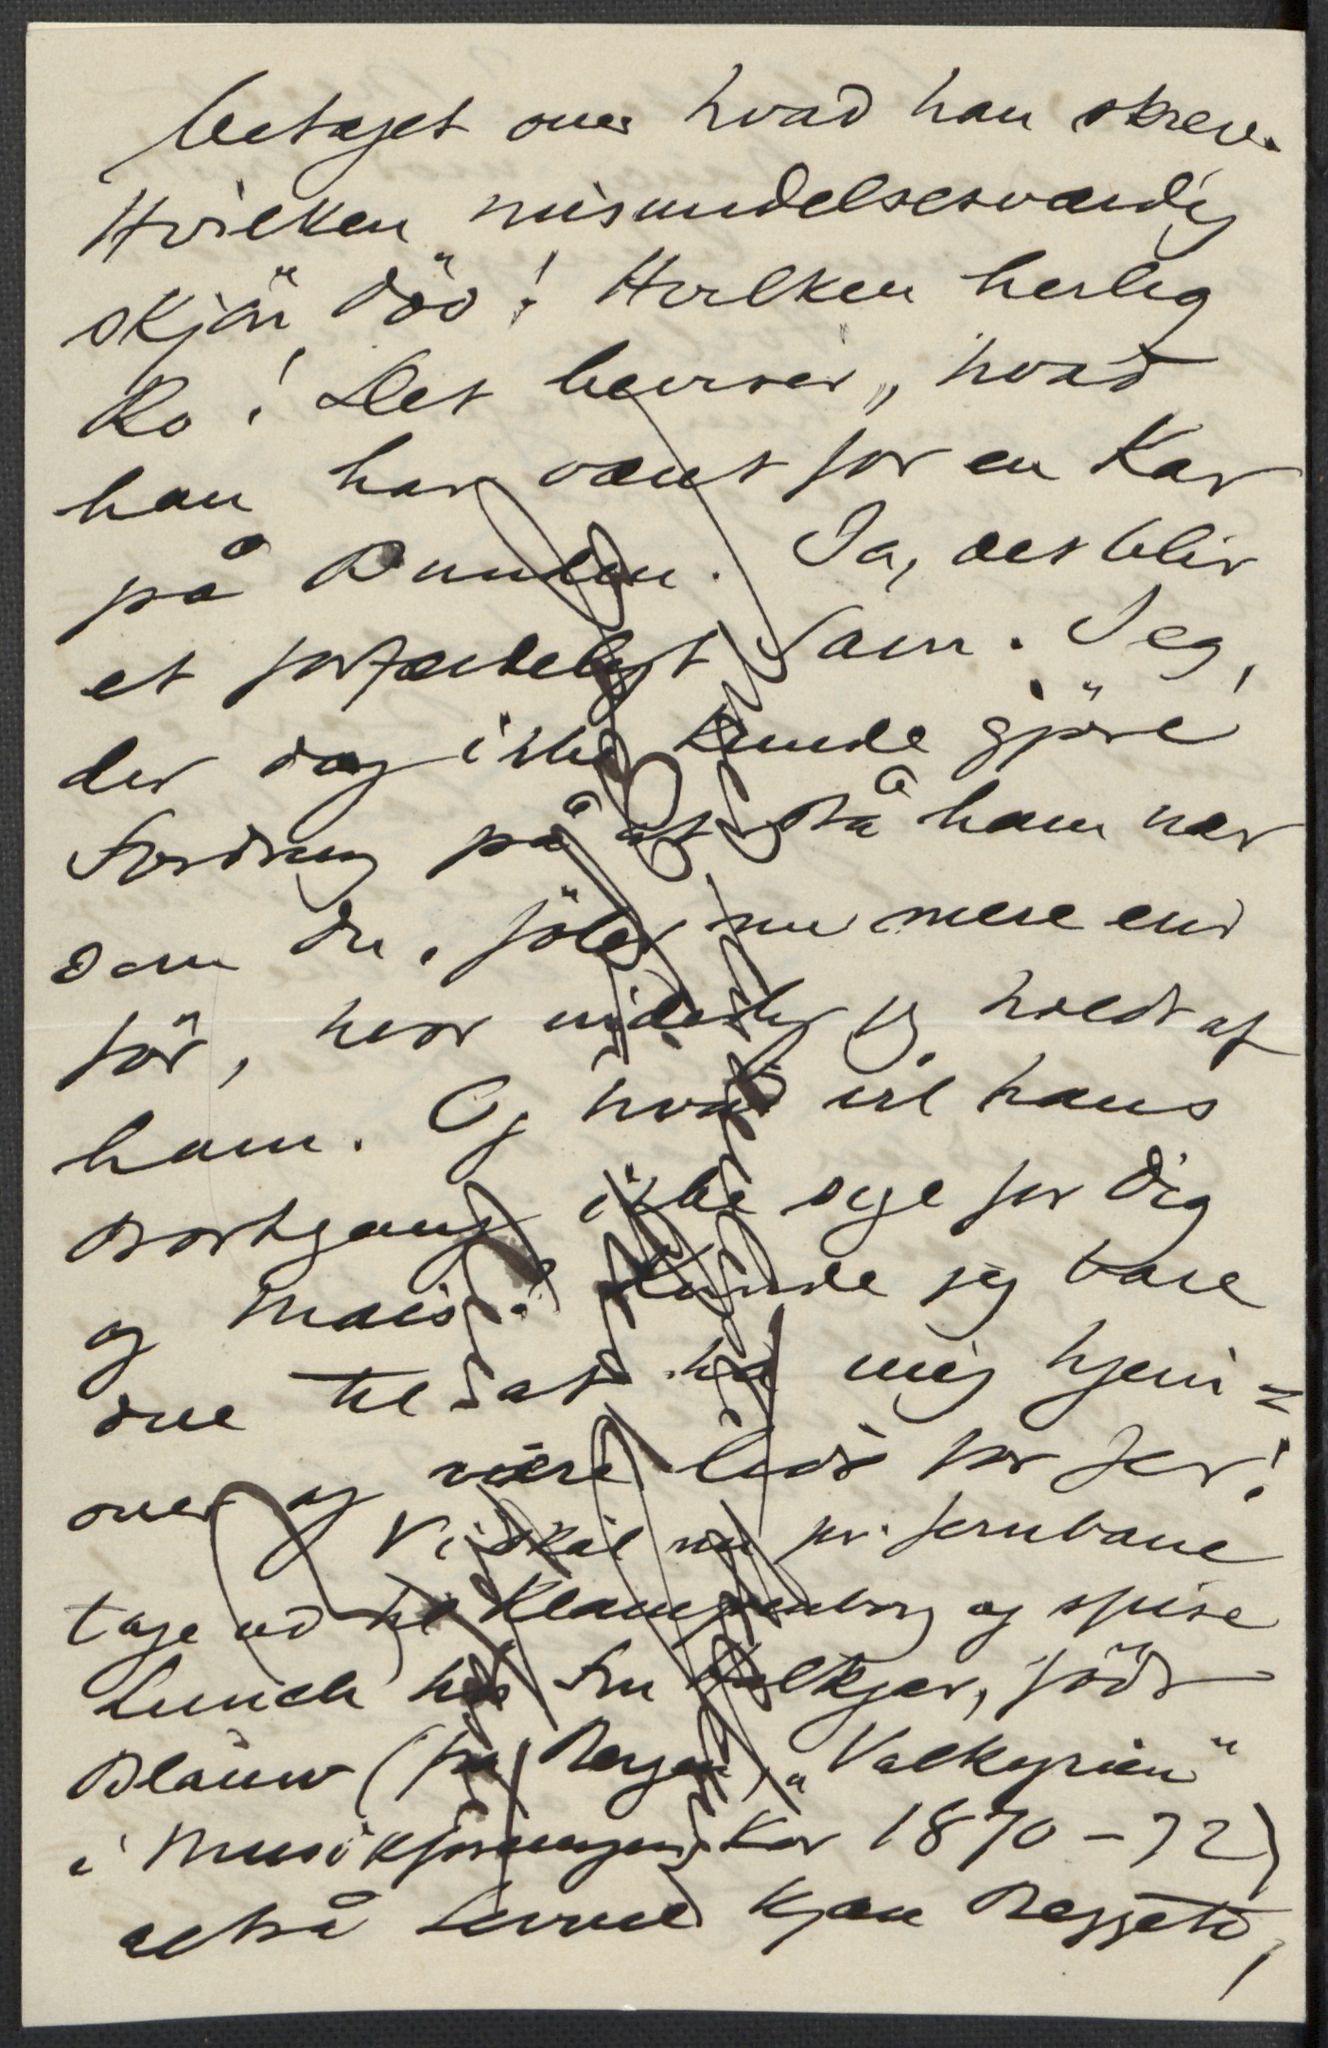 betaget over hvad han skrev.
Hvilken misundelsesværdig
skjön död! Hvilken herlig
Ro! Det beviser, hvad
han har været for en Kar
på Bunden. Ja, det blir
et forfærdeligt Savn. Jeg,
der dog ikke kunde gjöre
Fordring på at stå ham nær
som Du, föler nu mere end
för, hvor inderlig jg. holdt af
ham. Og hvad vil hans
Bortgang ikke sige for Dig
og Mais? Kunde jeg bare
due til at ha mig hjem=
over og være lidt for Jer!
Vi skal nu pr. Jernbane
tage ud til Klampenborg og spise
Lunch hos Fru Falkjær, födt
Blauw (fra Bergen, "Valkyrien"
i Musikforeningens Kor 1870–72)
altså kjære Reggetö,